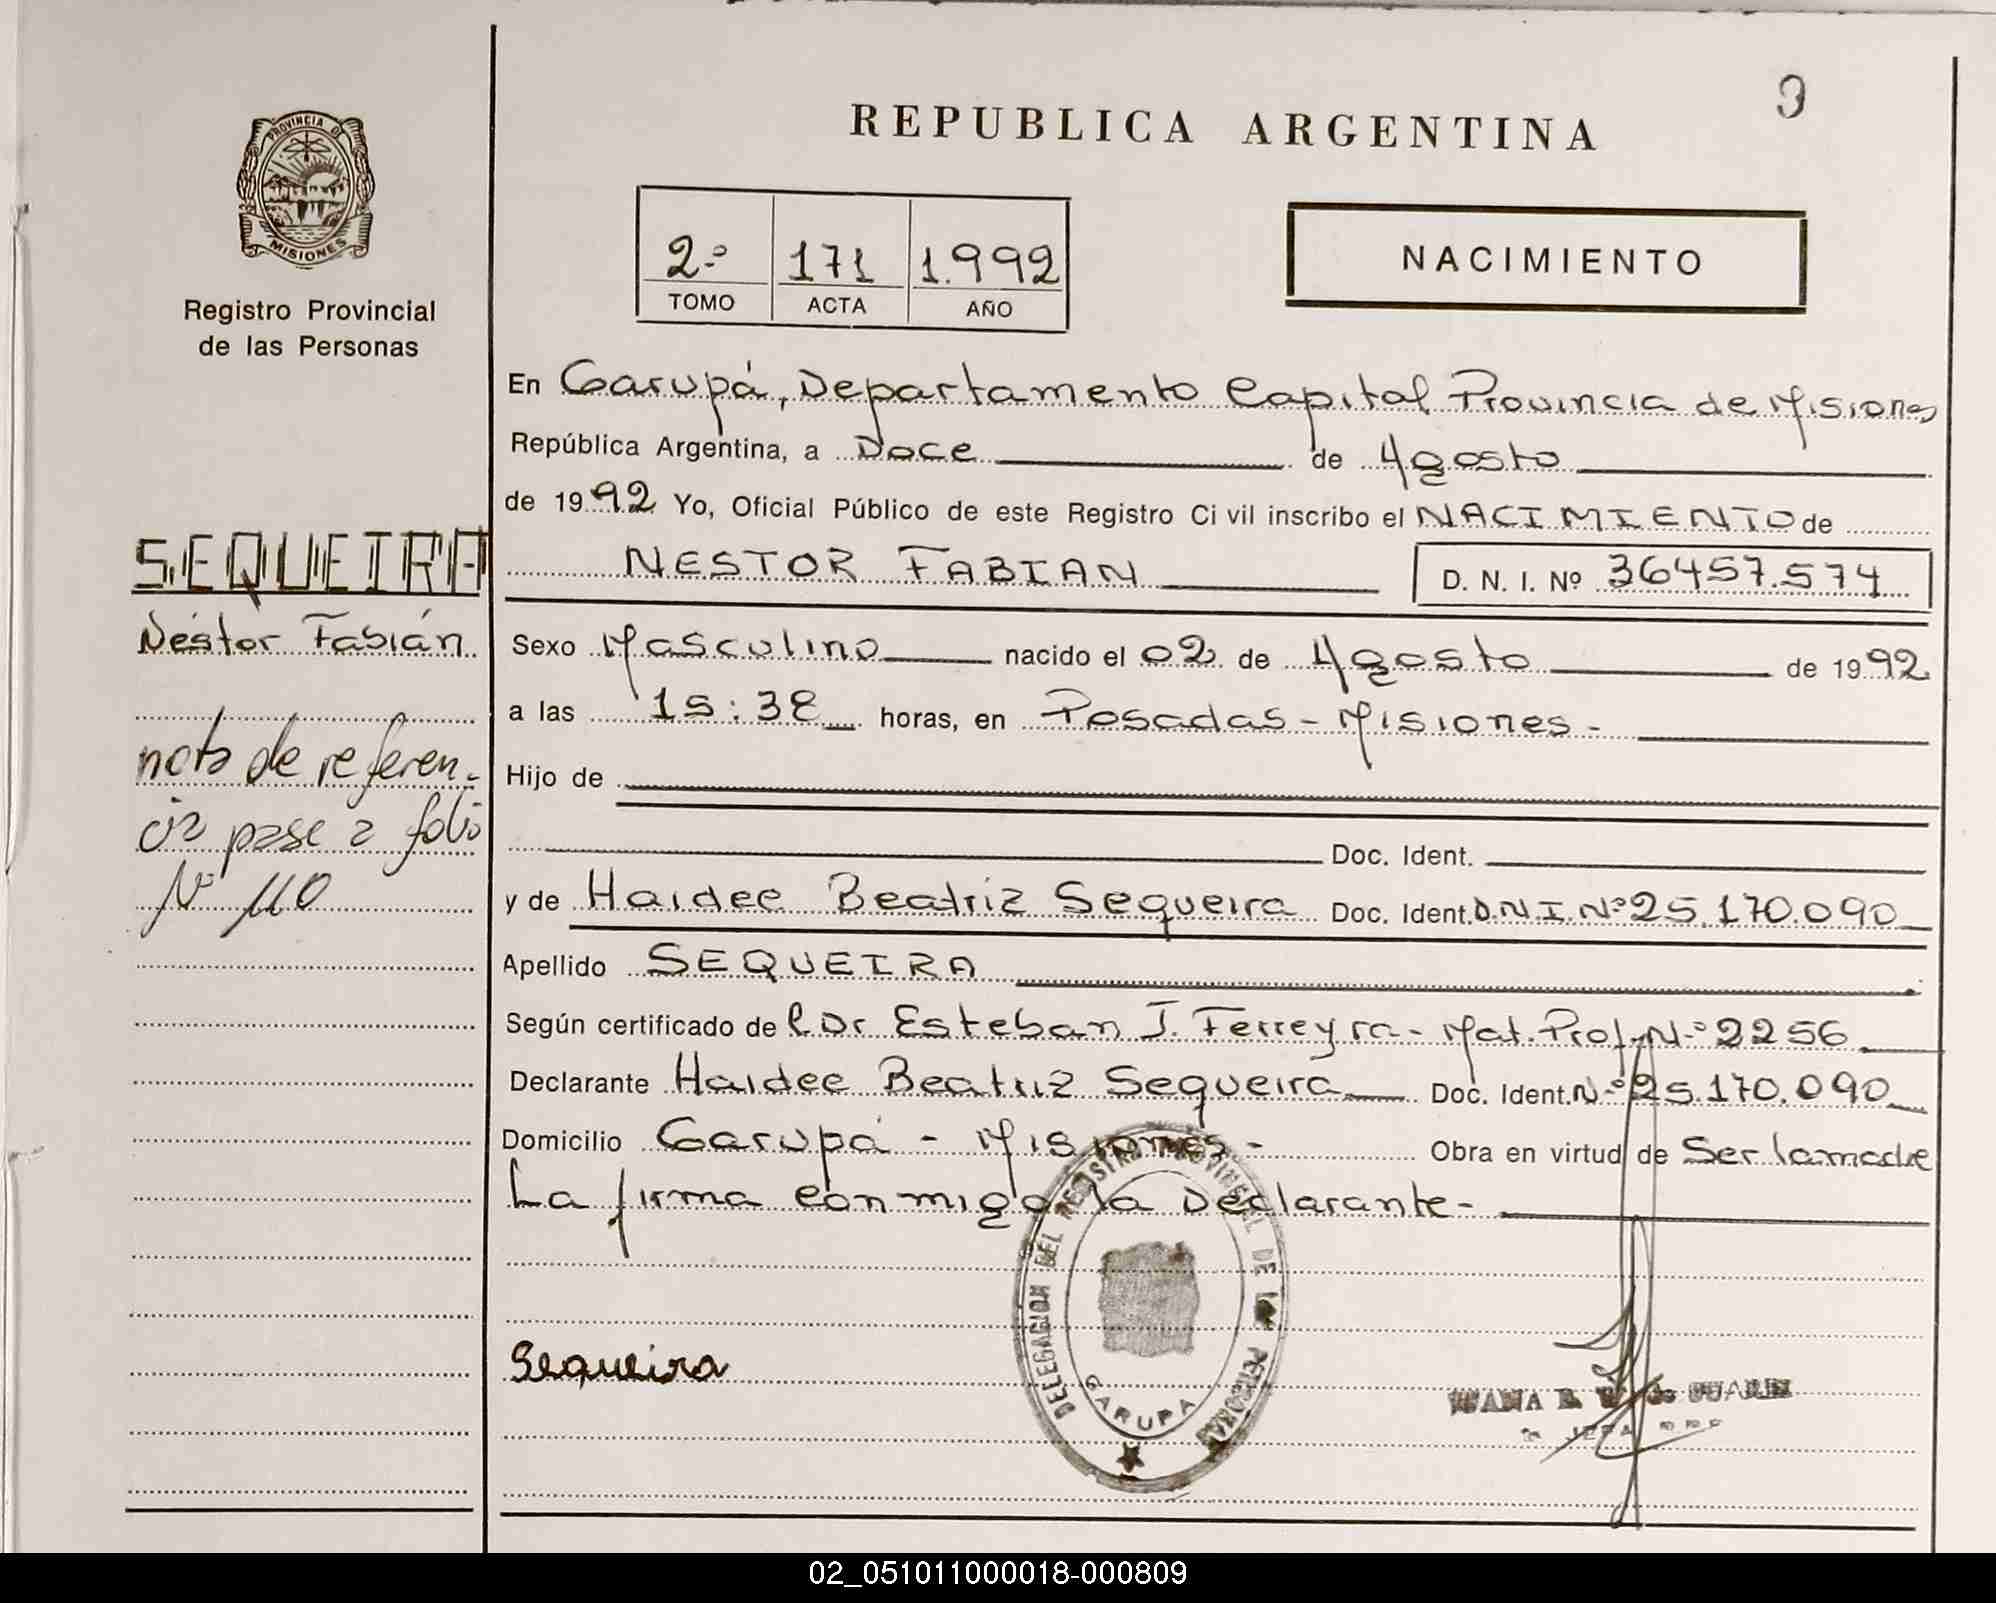 PROVINCIA DE
MISIONES
Registro Provincial
de las Personas
SEQUEIRA
Néstor Fabián
nota de referen-
cia pase a folio
Nº 110
REPUBLICA ARGENTINA
2º 171 1.992
TOMO ACTA AÑO
NACIMIENTO
En Garupá, Departamento Capital Provincia de Misiones
República Argentina, a Doce de Agosto
de 1992 Yo, Oficial Público de este Registro Civil inscribo el NACIMIENTO de
NESTOR FABIAN D. N. I. Nº 36457.574
Sexo Masculino nacido el 02 de Agosto de 1992
a las 15:38 horas, en Posadas - Misiones -
Hijo de
Doc. Ident.
y de Haidee Beatriz Sequeira Doc. Ident. D.N.I. Nº 25.170.090
Apellido SEQUEIRA
Según certificado de l Dr Esteban J. Ferreyra - Mat. Prof. Nº 2256
Declarante Haidee Beatriz Sequeira Doc. Ident. Nº 25.170.090
Domicilio Garupá - Misiones - Obra en virtud de Ser la madre
La firma conmigo la Declarante -
DELEGACION DEL REGISTRO PROVINCIAL DE LAS PERSONAS
GARUPA
Sequeira
JUANA de SUAREZ
JEFA
02_051011000018-000809